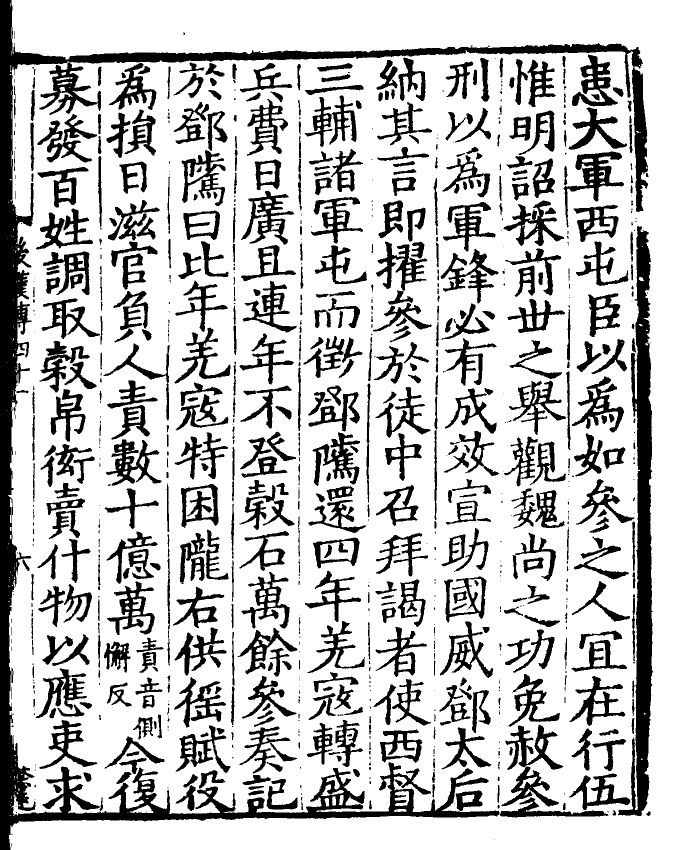 患大軍西屯臣以爲如參之人冝在行伍
惟明詔採前丗之舉觀魏尚之功免赦參
刑以爲軍鋒必有成效宣助國威鄧太后
納其言即擢參於徒中召拜謁者使西督
三輔諸軍屯而徵鄧隲還四年羌寇轉盛
兵費日廣且連年不登穀石萬餘參奏記
於鄧隲曰比年羌寇特困隴右供徭賦役
爲損日滋官負人責數十億萬責音側懈反今復
募發百姓調取穀帛衒賣什物以應吏求
後漢傳四十一
六